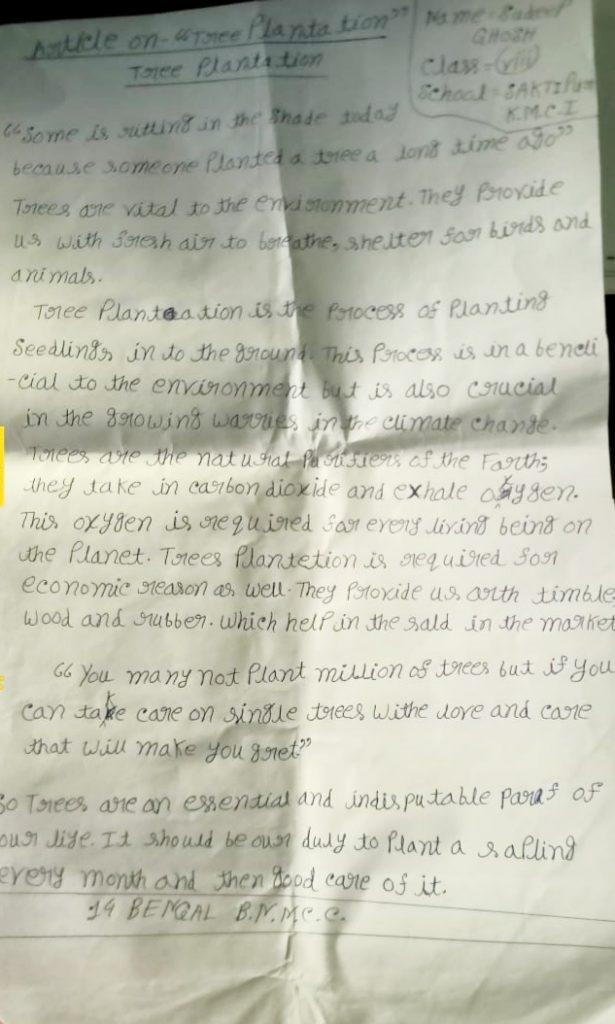 Article on - "Tree Plantation"
Name - Sadeep
GHOSH
Class - (viii)
School = SAKTIPur
K.M.C.I
Tree Plantation
"Some is sitting in the shade today
because someone Planted a tree a long time ago"
Trees are vital to the environment. They Provide
us with fresh air to breathe, shelter for birds and
animals.
Tree Plantation is the Process of Planting
Seedlings in to the ground. This Process is in a beneli
-cial to the environment but is also crucial
in the growing warries in the climate change.
Trees are the natural Purifiers of the Farth;
they take in carbon dioxide and exhale oxygen.
This oxygen is required for every living being on
the Planet. Trees Plantetion is required for
economic reason as well. They Provide us arth timble
Wood and rubber. Which help in the sald in the market
"You many not Plant million of trees but if you
can take care on single trees withe love and care
that will make you gret"
So Trees are an essential and indisputable of
our life. It should be our duly to Plant a sapling
every month and then good care of it.
14 BENGAL B.N.M.C.C.